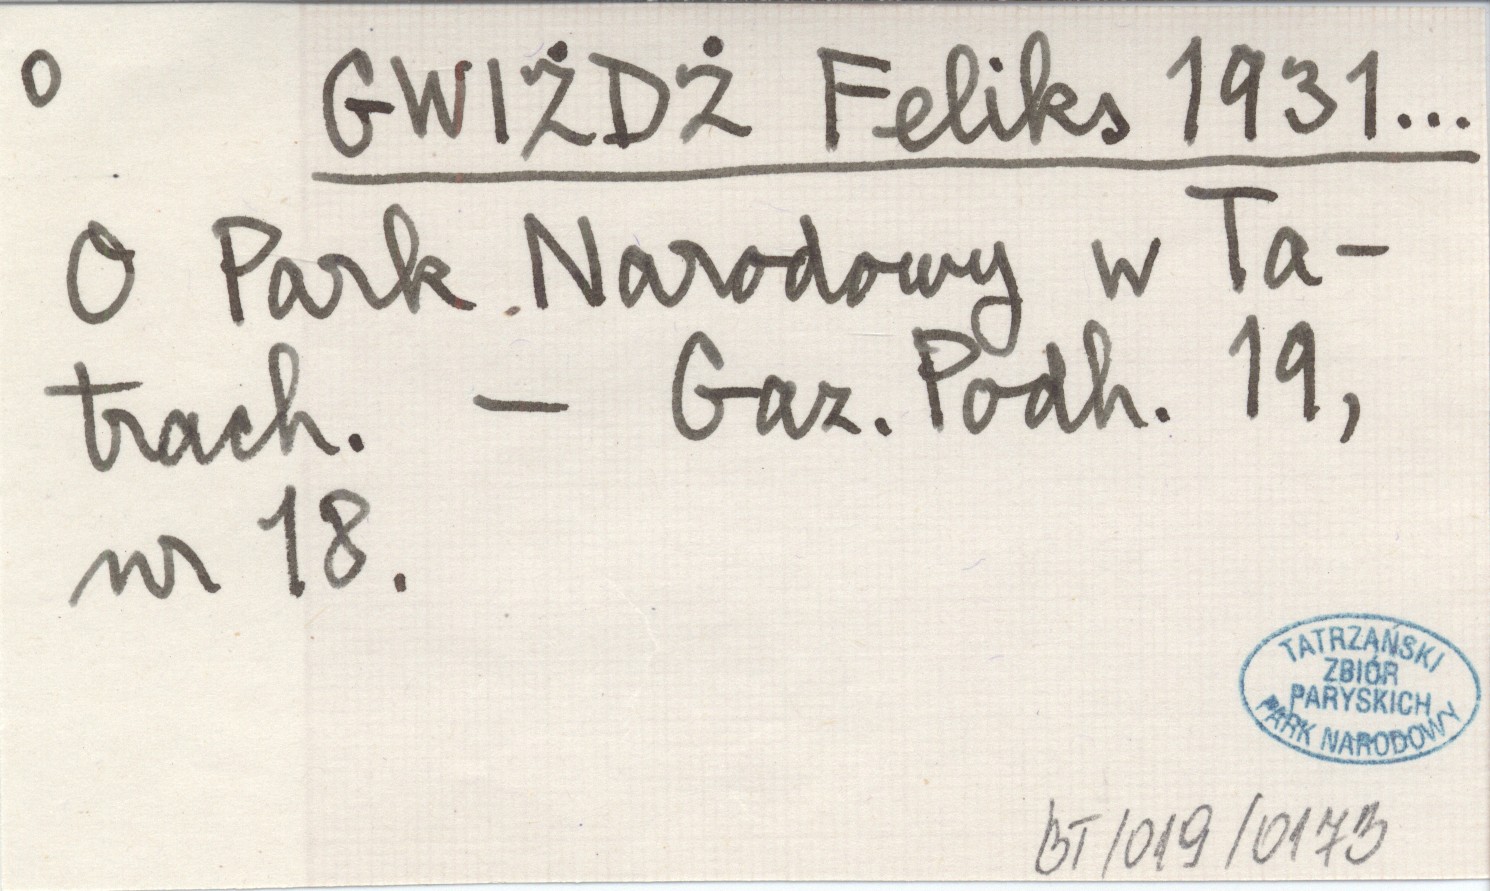 o GWIŻDŻ Feliks 1931...
O Park Narodowy w Ta-
trach. — Gaz. Podh. 19,
nr 18.
TATRZAŃSKI
ZBIÓR
PARYSKICH
PARK NARODOWY
BT/019/0173